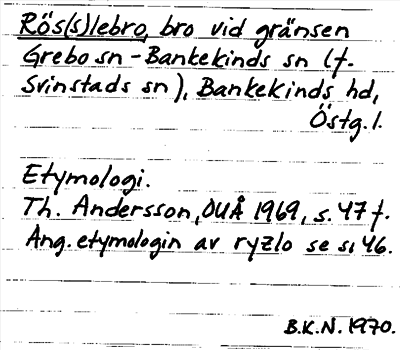 Rös(s)lebro, bro vid gränsen
Grebo sn - Bankekinds sn (f.
Svinstads sn), Bankekinds hd,
Östg. l.
Etymologi.
Th. Andersson, OUÅ 1969, s. 47 f.
Ang. etymologin av ryzlo se s. 46.
B.K.N. 1970.